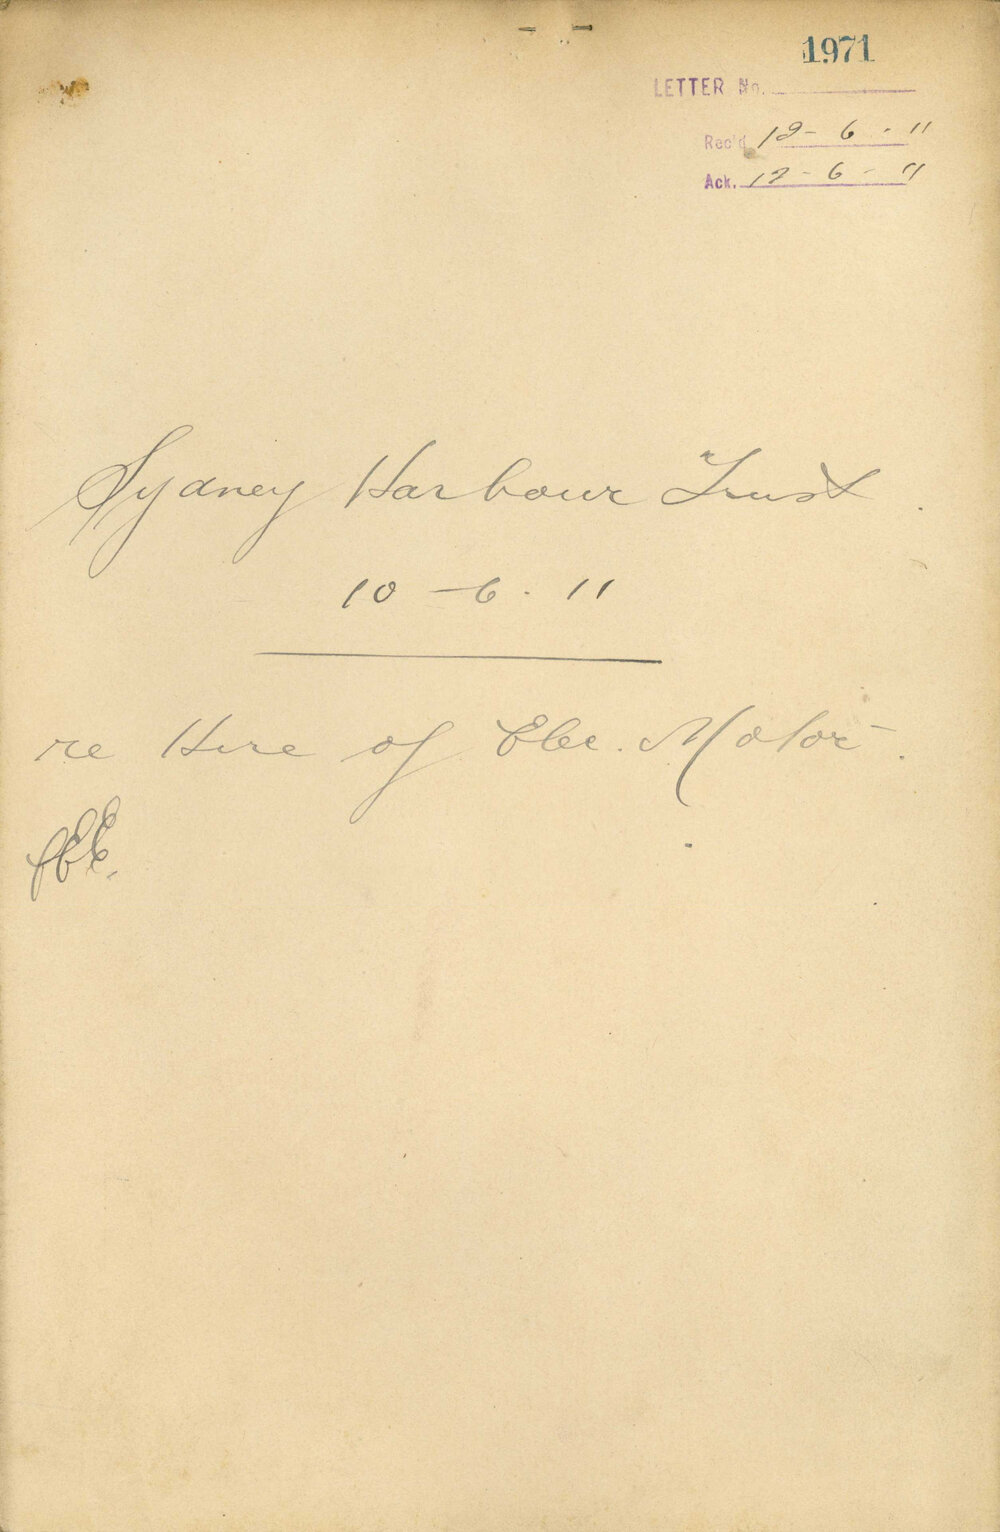 1971
LETTER No.
Rec'd 12 - 6 - 11
Ack. 12 - 6 - 11
Sydney Harbour Trust.
10 - 6 - 11
re Hire of Elec. Motor.